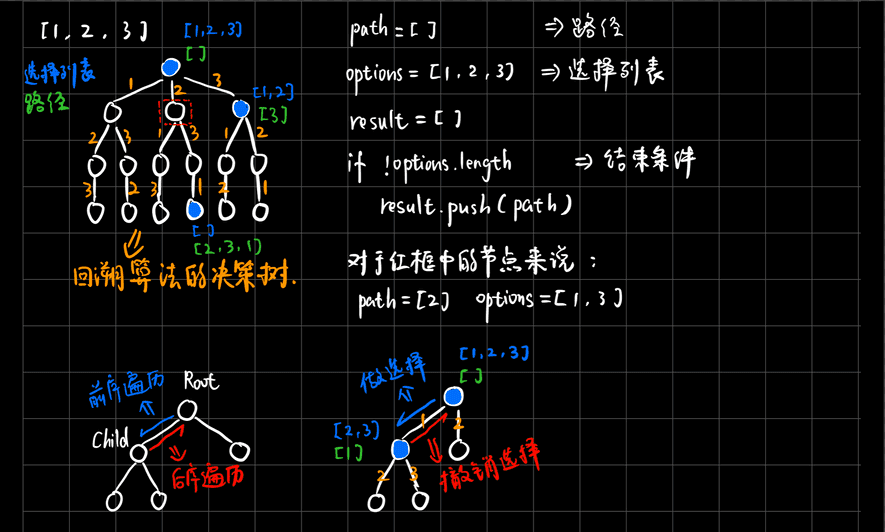 [1, 2, 3]
[1, 2, 3]
[ ]
选择列表
路径
1
2
3
[1, 2]
[3]
2
3
1
3
1
2
3
2
3
1
2
1
[ ]
[2, 3, 1]
回溯算法的决策树.
path = [ ] ⇒ 路径
options = [1, 2, 3] ⇒ 选择列表
result = [ ]
if !options.length ⇒ 结束条件
result.push(path)
对于红框中的节点来说:
path = [2] options = [1, 3]
前序遍历
Root
Child
后序遍历
[1, 2, 3]
[ ]
做选择
1
2
[2, 3]
[1]
撤销选择
2
3